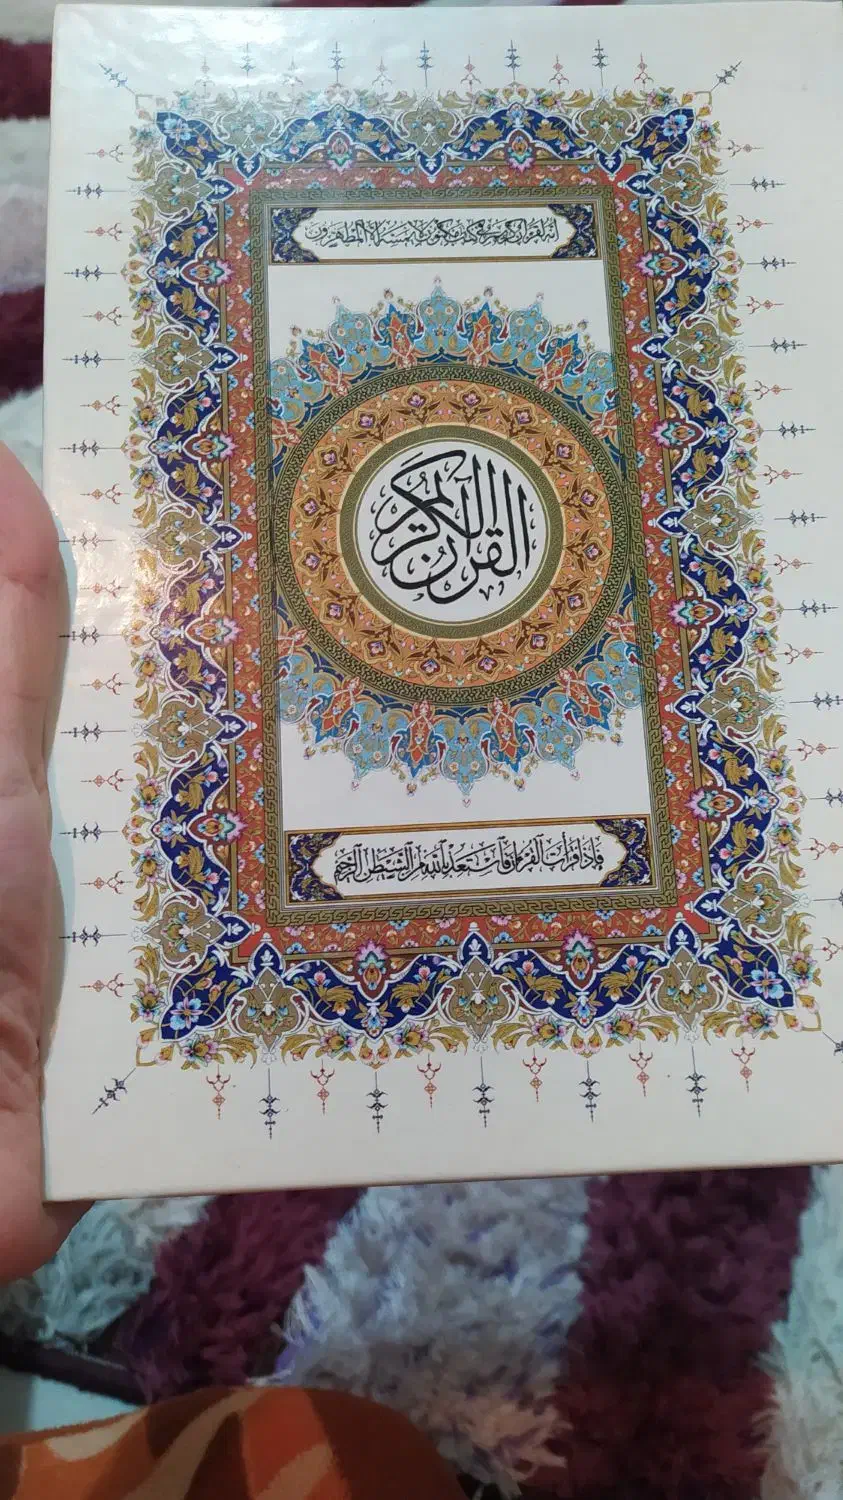 إنه لقرءان كريم في كتاب مكنون لا يمسه إلا المطهرون
القرآن الكريم
فَإِذَا قَرَأْتَ الْقُرْءَانَ فَاسْتَعِذْ بِاللَّهِ مِنَ الشَّيْطَٰنِ الرَّجِيمِ